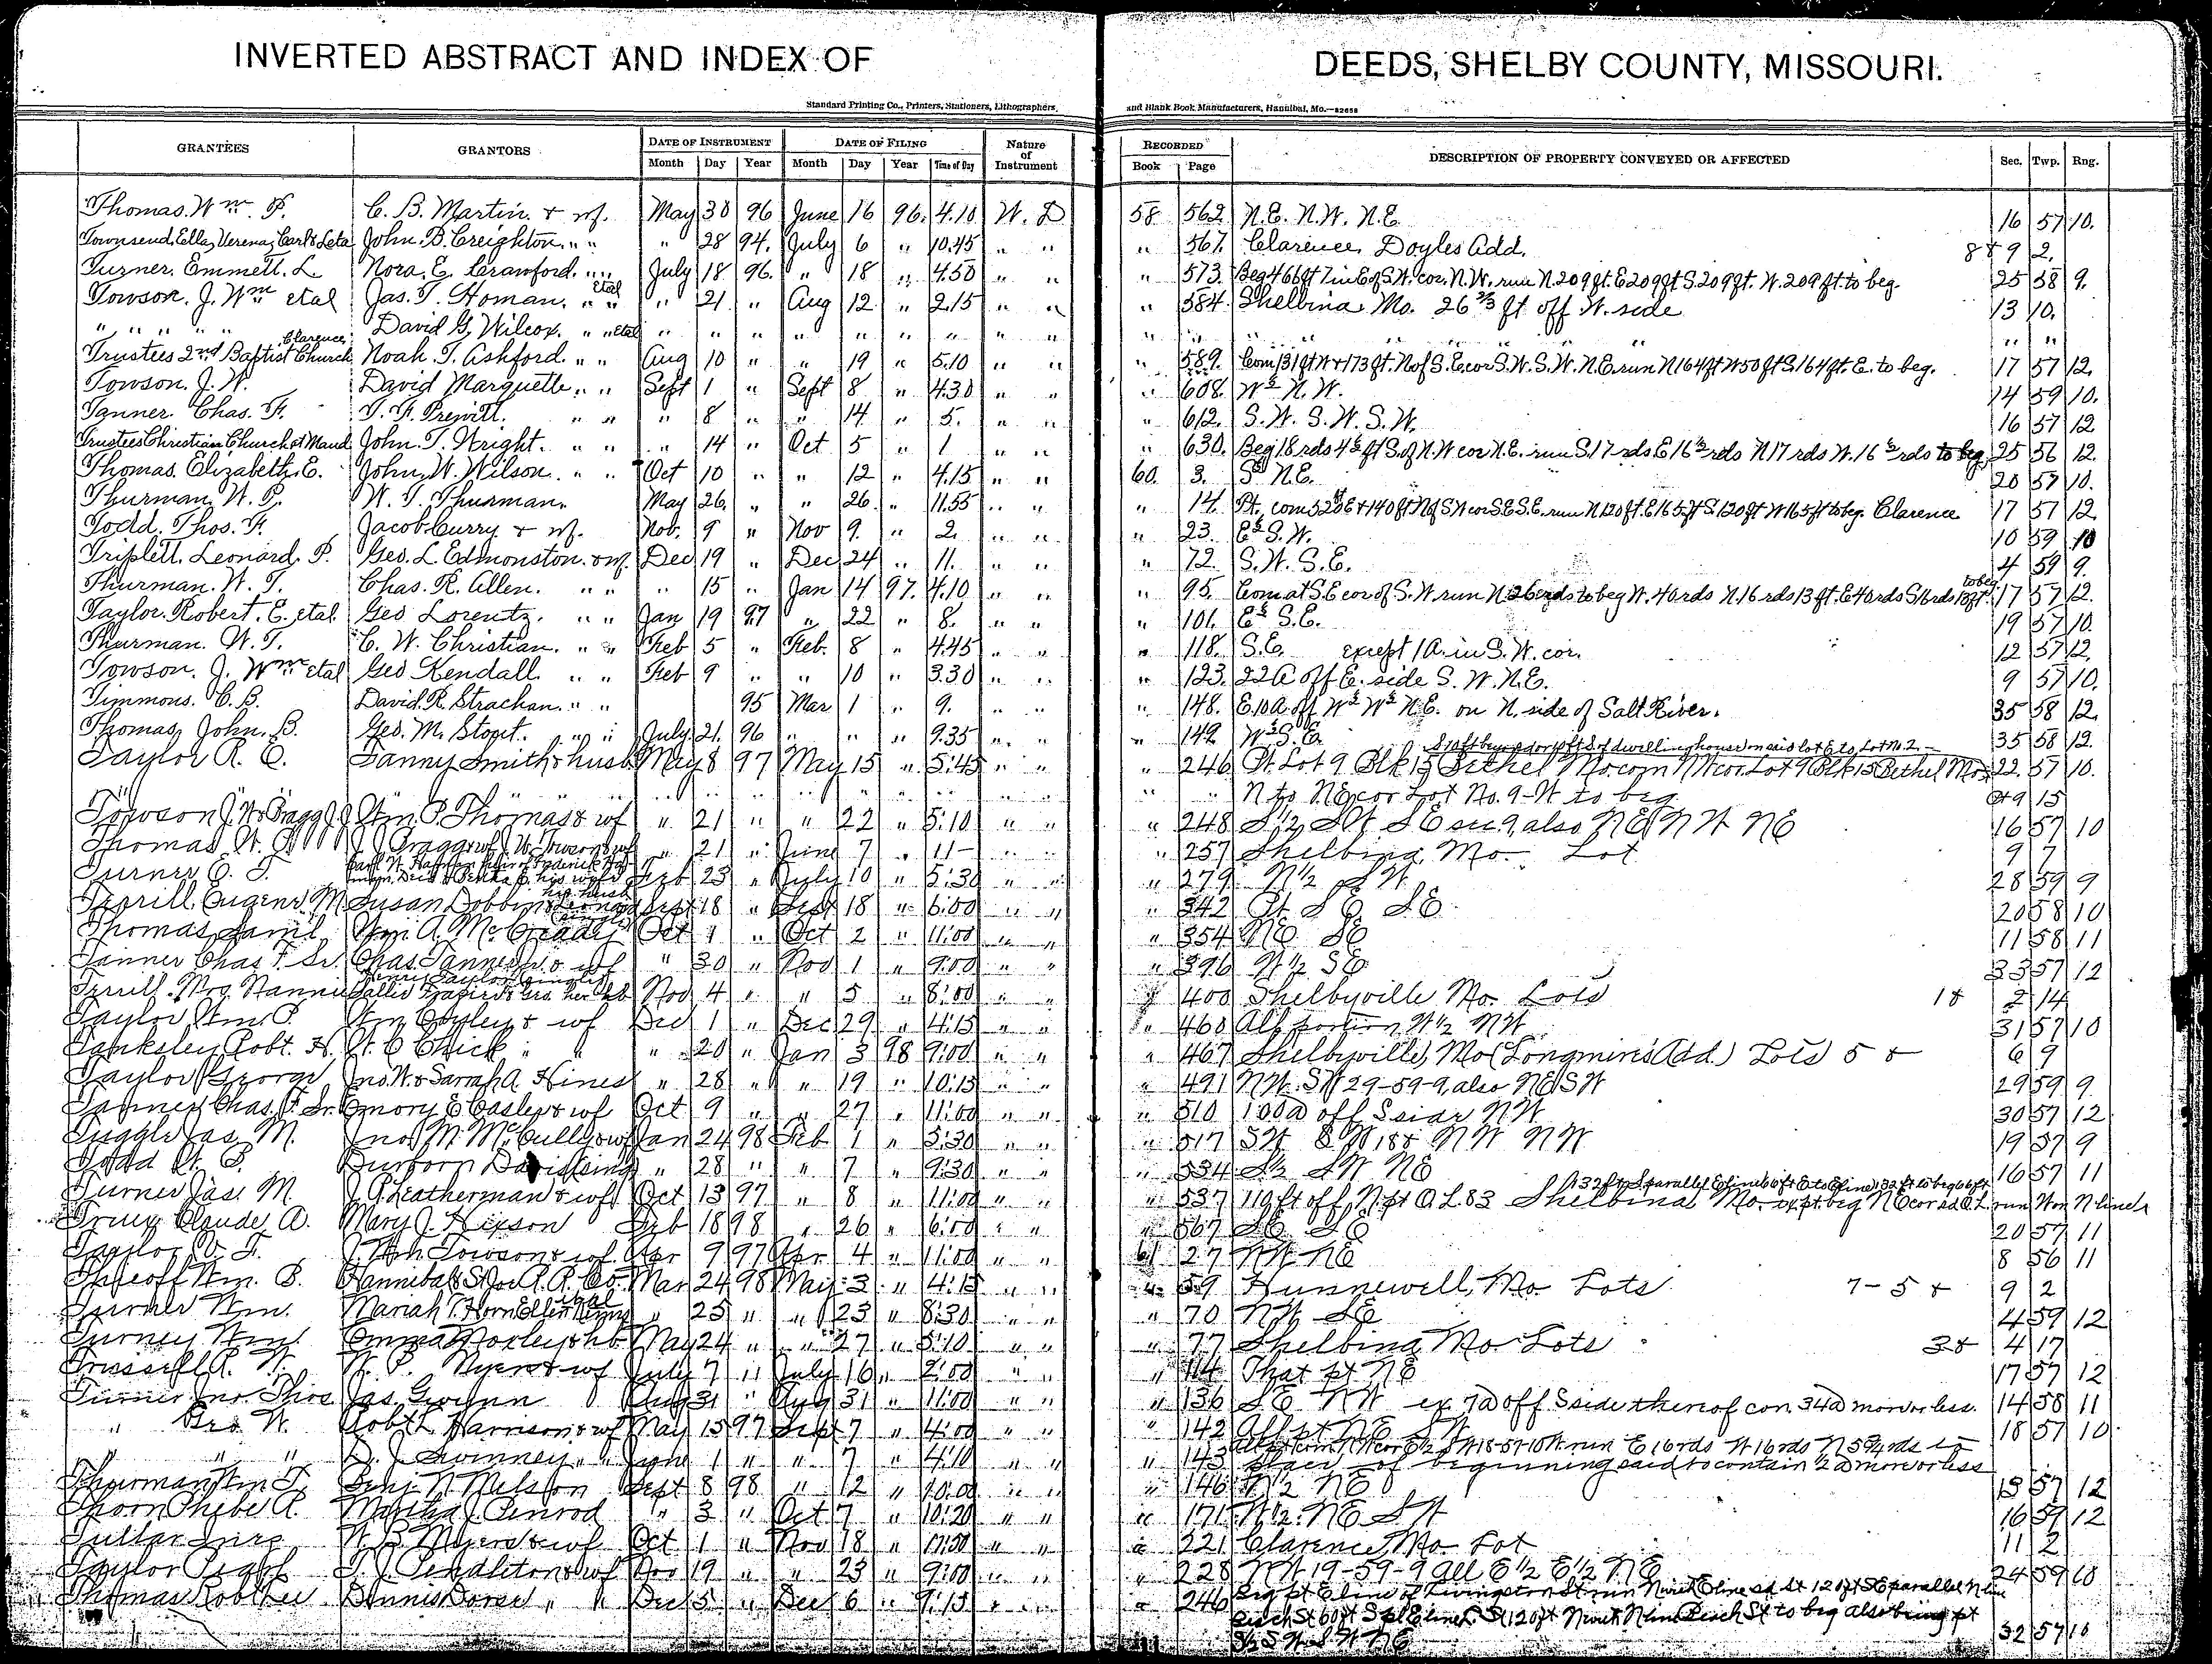 INVERTED ABSTRACT AND INDEX OF DEEDS, SHELBY COUNTY, MISSOURI.
Standard Printing Co., Printers, Stationers, Lithographers, and Blank Book Manufacturers, Hannibal, Mo.—82658
GRANTEES GRANTORS DATE OF INSTRUMENT DATE OF FILING Nature of Instrument RECORDED DESCRIPTION OF PROPERTY CONVEYED OR AFFECTED Sec. Twp. Rng.
Month Day Year Month Day Year Time of Day Book Page
Thomas. Wm. P. C. B. Martin. & wf. May 30 96 June 16 96. 4.10 W. D 58 562 N.E. N.W. N.E. 16 57 10.
Townsend, Ella, Verena, Carl & Leta John. B. Creighton. " " " 28 94. July 6 " 10.45 " " " 567. Clarence, Doyles Add. 8 & 9 2.
Turner. Emmett. L Nora. E. Crawford. " " July 18 96. " 18 " 4.50 " " " 573. Beg 466 ft 7 in E of S.W. cor. N.W. run N. 209 ft. E 209 ft S. 209 ft. W. 209 ft. to beg. 25 58 9.
Towson. J. Wm. etal Jas. T. Homan. " " Etal " 21 " Aug 12 " 2.15 " " " 584. Shelbina Mo. 26 2/3 ft off W. side 13 10.
" " " " " David G. Wilcox. " " Etal " " " " " " " " " " " " " "
Trustees 2nd Baptist Church Clarence, Noah. T. Ashford. " " Aug 10 " " 19 " 5.10 " " " 589. Com 131 ft W & 173 ft. N of S.E. cor S.W. S.W. N.E. run N 164 ft W 50 ft S. 164 ft. E. to beg. 17 57 12.
Towson. J. W. David Marquette. " " Sept 1 " Sept 8 " 4.30 " " " 608. W½ N.W. 14 59 10.
Tanner. Chas. F. T. F. Prewitt. " " " 8 " " 14 " 5. " " " 612. S.W. S.W. S.W. 16 57 12
Trustees Christian Church at Maud John. T. Wright. " " " 14 " Oct 5 " 1 " " " 630. Beg 18 rds 4½ ft S. of N.W cor N.E. run S. 17 rds E 16½ rds N 17 rds W. 16½ rds to beg. 25 56 12.
Thomas. Elizabeth. E. John. W. Wilson. " " Oct 10 " " 12 " 4.15 " " 60. 3. S½ N.E. 20 57 10.
Thurman. W. P. W. T. Thurman. May 26. " " 26 " 11.55 " " " 14. Pt. com 525 ft E & 140 ft N of SW cor S.E. S.E. run N 120 ft. E 165 ft S. 120 ft W 165 ft to beg. Clarence 17 57 12.
Todd. Thos. F. Jacob Curry & wf. Nov. 9 " Nov 9. " 2. " " " 23. E½ S.W. 10 59 10
Triplett. Leonard. P. Geo. L. Edmonston. & wf. Dec 19 " Dec 24 " 11. " " " 72. S.W. S.E. 4 59 9.
Thurman. W. T. Chas. R. Allen. " " " 15 " Jan 14 97. 4.10 " " " 95. Com at S.E cor of S.W run N 26 rds to beg W. 40 rds N. 16 rds 13 ft. E 40 rds S 16 rds 13 ft. to beg. 17 57 12.
Taylor. Robert. E. etal. Geo Lorentz. " " Jan 19 97 " 22 " 8. " " " 101. E½ S.E. 19 57 10.
Thurman. W. T. C. W. Christian. " " Feb 5 " Feb. 8 " 4.45 " " " 118. S.E. except 1 A. in S.W. cor. 12 57 12.
Towson. J. Wm etal Geo Kendall. " " Feb 9 " " 10 " 3.30 " " " 123. 22 A off E. side S.W. N.E. 9 57 10.
Timmons. C. B. David. R. Strachan. " " 95 Mar 1 " 9. " " " 148. E. 10 A off W½ W½ N.E. on N. side of Salt River. 35 58 12.
Thomas, John. B. Geo. M. Stort. " " July 21. 96 " " " 9.35 " " " 149. W½ S.E. 35 58 12.
Taylor R. C. Fanny Smith & husb May 8 97 May 15 " 5:45 " " " 246 Pt Lot 9 Blk 15 Bethel Mo. com NW cor. Lot 9 Blk 15 Bethel Mo 22 57 10.
" " " " " " " " " " N to NE cor Lot No. 9 - W to beg 9 15
Towson J. W & Bragg J. J Wm. P. Thomas & wf " 21 " " 22 " 5:10 " " " 248 S½ SW SE sec 9, also NE NW NE 16 57 10
Thomas W. P. J. J. Bragg & wf J. W. Towson & wf " 21 " June 7 " 11- " " " 257 Shelbina, Mo. Lot 9 7
Turner E. T. Feb 23 " July 10 " 5:30 " " " 279 N½ SW 28 59 9
Terrill Eugene M Susan Dobbin Sept 18 " Sept 18 " 6:00 " " " 342 Pt SE SE 20 58 10
Thomas Saml. Wm. A. McCready Oct 1 " Oct 2 " 11:00 " " " 354 NE SE 11 58 11
Tanner Chas F. Sr. Chas Tanner Jr & wf " 30 " Nov 1 " 9:00 " " " 396 W½ SE 33 57 12
Terrill Mrs. Nannie Sallie Frazier & Geo. her hb Nov 4 " " 5 " 8:00 " " " 400 Shelbyville Mo. Lots 1 & 2 14
Taylor Wm. P. Wm Coyley & wf Dec 1 " Dec 29 " 4:15 " " " 460 All portion W½ NW 31 57 10
Tanksley Robt. H. W. C Chick " " " 20 " Jan 3 98 9:00 " " " 467 Shelbyville, Mo (Longmire's Add.) Lots 5 & 6 9
Taylor George Jno. W. & Sarrah A. Hines " 28 " " 19 " 10:15 " " " 491 NW. SW 29-59-9, also NE SW 29 59 9
Tanner Chas. F. Sr. Emory E Easley & wf Oct 9 " " 27 " 11:00 " " " 510 100 a off S side NW 30 57 12
Tuggle Jas. M. Jno. M. McCully & wf Jan 24 98 Feb 1 " 5:30 " " " 517 19 57 9
Todd W. S. Durborn Davis (sing) " 28 " " 7 " 9:30 " " " 534 S½ SW NE 16 57 11
Turner Jas. M J. P. Leatherman & wf Oct 13 97 " 8 " 11:00 " " " 537 110 ft off N. pt O. L. 83 Shelbina Mo.
Truex Claude A. Mary J. Hixson Feb 18 98 " 26 " 6:00 " " " 567 SE SE 20 57 11
Taylor V. T. J. Wm. Towson & wf Apr 9 97 Apr 4 " 11:00 " " 61 27 NW NE 8 56 11
Wm. B. Hannibal & St Joe R. R. Co. Mar 24 98 May 3 " 4:15 " " " 59 Hunnewell, Mo. Lots 7 - 5 & 9 2
Turner Wm. Mariah T. Horn " 25 " " 23 " 8:30 " " " 70 NW SE 4 59 12
Turney Wm. Emma Noxley & hb May 24 " " 27 " 5:10 " " " 77 Shelbina, Mo. Lots 3 & 4 17
Trussell R. W. W. P. Myers & wf July 7 " July 16 " 2:00 " " " 114 That pt NE 17 57 12
Turner Jno. Thos Jas. Gwynn Aug 31 " Aug 31 " 11:00 " " " 136 SE NW ex 7a off S side thereof con. 34a more or less. 14 58 11
" Geo. W. Robt L Harrison & wf May 15 97 Sept 7 " 4:00 " " " 142 All pt NE SW 18 57 10
" " D. J. Swinney " " June 1 " " 7 " 4:10 " " " 143 place of beginning said to contain ½ a more or less
Thurman Wm. T. Benj. N. Nelson Sept 8 98 " 12 " 10:00 " " " 146 N½ NE 13 57 12
Thorn Phebe A. Martha J. Penrod " 3 " Oct 7 " 10:20 " " " 171 W½ NE SW 16 59 12
W. B. Myers & wf Oct 1 " Nov 18 " 11:50 " " " 221 Clarence, Mo. Lot 11 2
Taylor T. J. Pendleton & wf Nov 19 " " 23 " 9:00 " " " 228 NW 19-59-9 all E½ E½ NE 24 59 10
Thomas Dennis Dorse " " Dec 5 " Dec 6 " 9:15 " " " 246 Beg pt E line of Livingston St run N
Beach St to beg also being pt
S½ SW SW NE 32 57 10